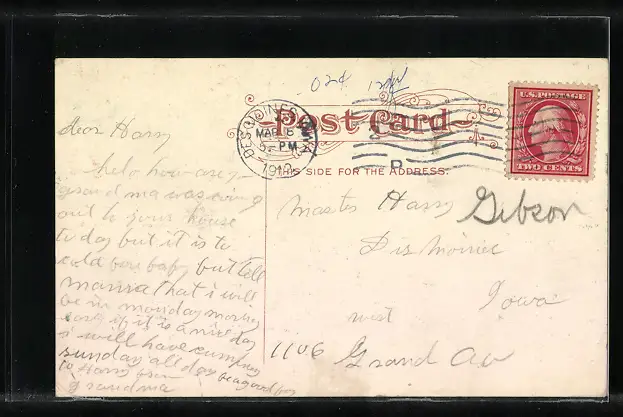 Post Card
THIS SIDE FOR THE ADDRESS.
DES MOINES
MAR
5 - PM
U.S. POSTAGE
TWO CENTS
dear Harry
helo how are
grand ma was
out to your house
to day but it is to
cold baby but tell
mama that i will
be in monday morning
if it is a nice day
i will have company
sunday all day be a good boy
to Harry from
grandma
Master Harry Gibson
Iowa
west
1106 Grand Av